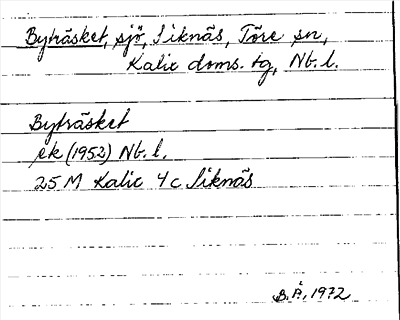 Byträsket, sjö, Siknäs, Töre sn,
Kalix doms. tg, Nb. l.
Byträsket
ek (1952) Nb. l.
25 M Kalix 4 c Siknäs
B. Å, 1972